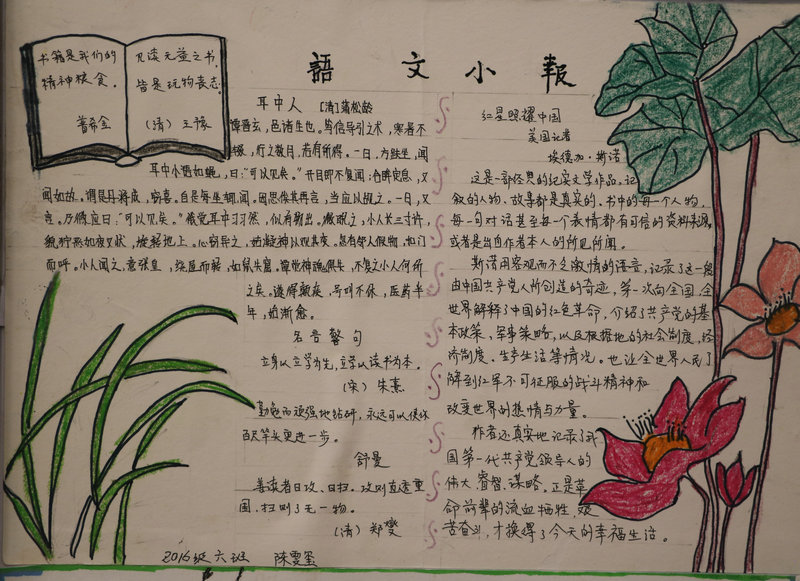 語文小報
书籍是我们的
精神粮食。
普希金
见读无益之书,
皆是玩物丧志。
(清) 王豫
耳中人 [清]蒲松龄
谭晋玄,邑诸生也。笃信导引之术,寒暑不
辍,行之数月,若有所得。一日,方趺坐,闻
耳中小语如蝇,曰:“可以见矣。”开目即不复闻;合眸定息,又
闻如故。谓是丹将成,窃喜。自是每坐辄闻。因思俟其再言,当应以觇之。一日,又
言。乃微应曰:“可以见矣。”俄觉耳中习习然,似有物出。微睨之,小人长三寸许,
貌狞恶如夜叉状,旋转地上。心窃异之,姑凝神以观其变。忽有邻人假物,扣门
而呼。小人闻之,意张皇,绕屋而转,如鼠失窟。谭觉神魂俱失,不复知小人何所
之矣。遂得颠疾,号叫不休,医药半
年,始渐愈。
名言警句
立身以立学为先,立学以读书为本。
(宋) 朱熹
勤勉而顽强地钻研,永远可以使你
百尺竿头更进一步。
舒曼
善读者日攻、日扫。攻则直透重
围,扫则了无一物。
(清) 郑燮
2016级六班 陈雯
红星照耀中国
美国记者
埃德加·斯诺
这是一部经典的纪实文学作品,记
叙的人物、故事都是真实的,书中的每一个人物,
每一句对话甚至每一个表情都有可信的资料来源,
或者是出自作者本人的所见所闻。
斯诺用客观而不乏激情的语言,记录了这一段
由中国共产党人所创造的奇迹,第一次向全国、全
世界解释了中国的红色革命,介绍了共产党的基
本政策、军事策略,以及根据地的社会制度,经
济制度、生产生活等情况。也让全世界人民了
解到红军不可征服的战斗精神和
改变世界的热情与力量。
作者还真实地记录了我
国第一代共产党领导人的
伟大、睿智、谋略,正是革
命前辈的流血牺牲,艰
苦奋斗,才换得了今天的幸福生活。